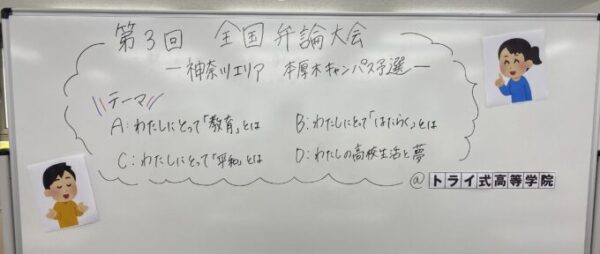 第3回 全国弁論大会
―神奈川エリア 本厚木キャンパス予選―
テーマ
A:わたしにとって「教育」とは
B:わたしにとって「はたらく」とは
C:わたしにとって「平和」とは
D:わたしの高校生活と夢
@トライ式高等学院